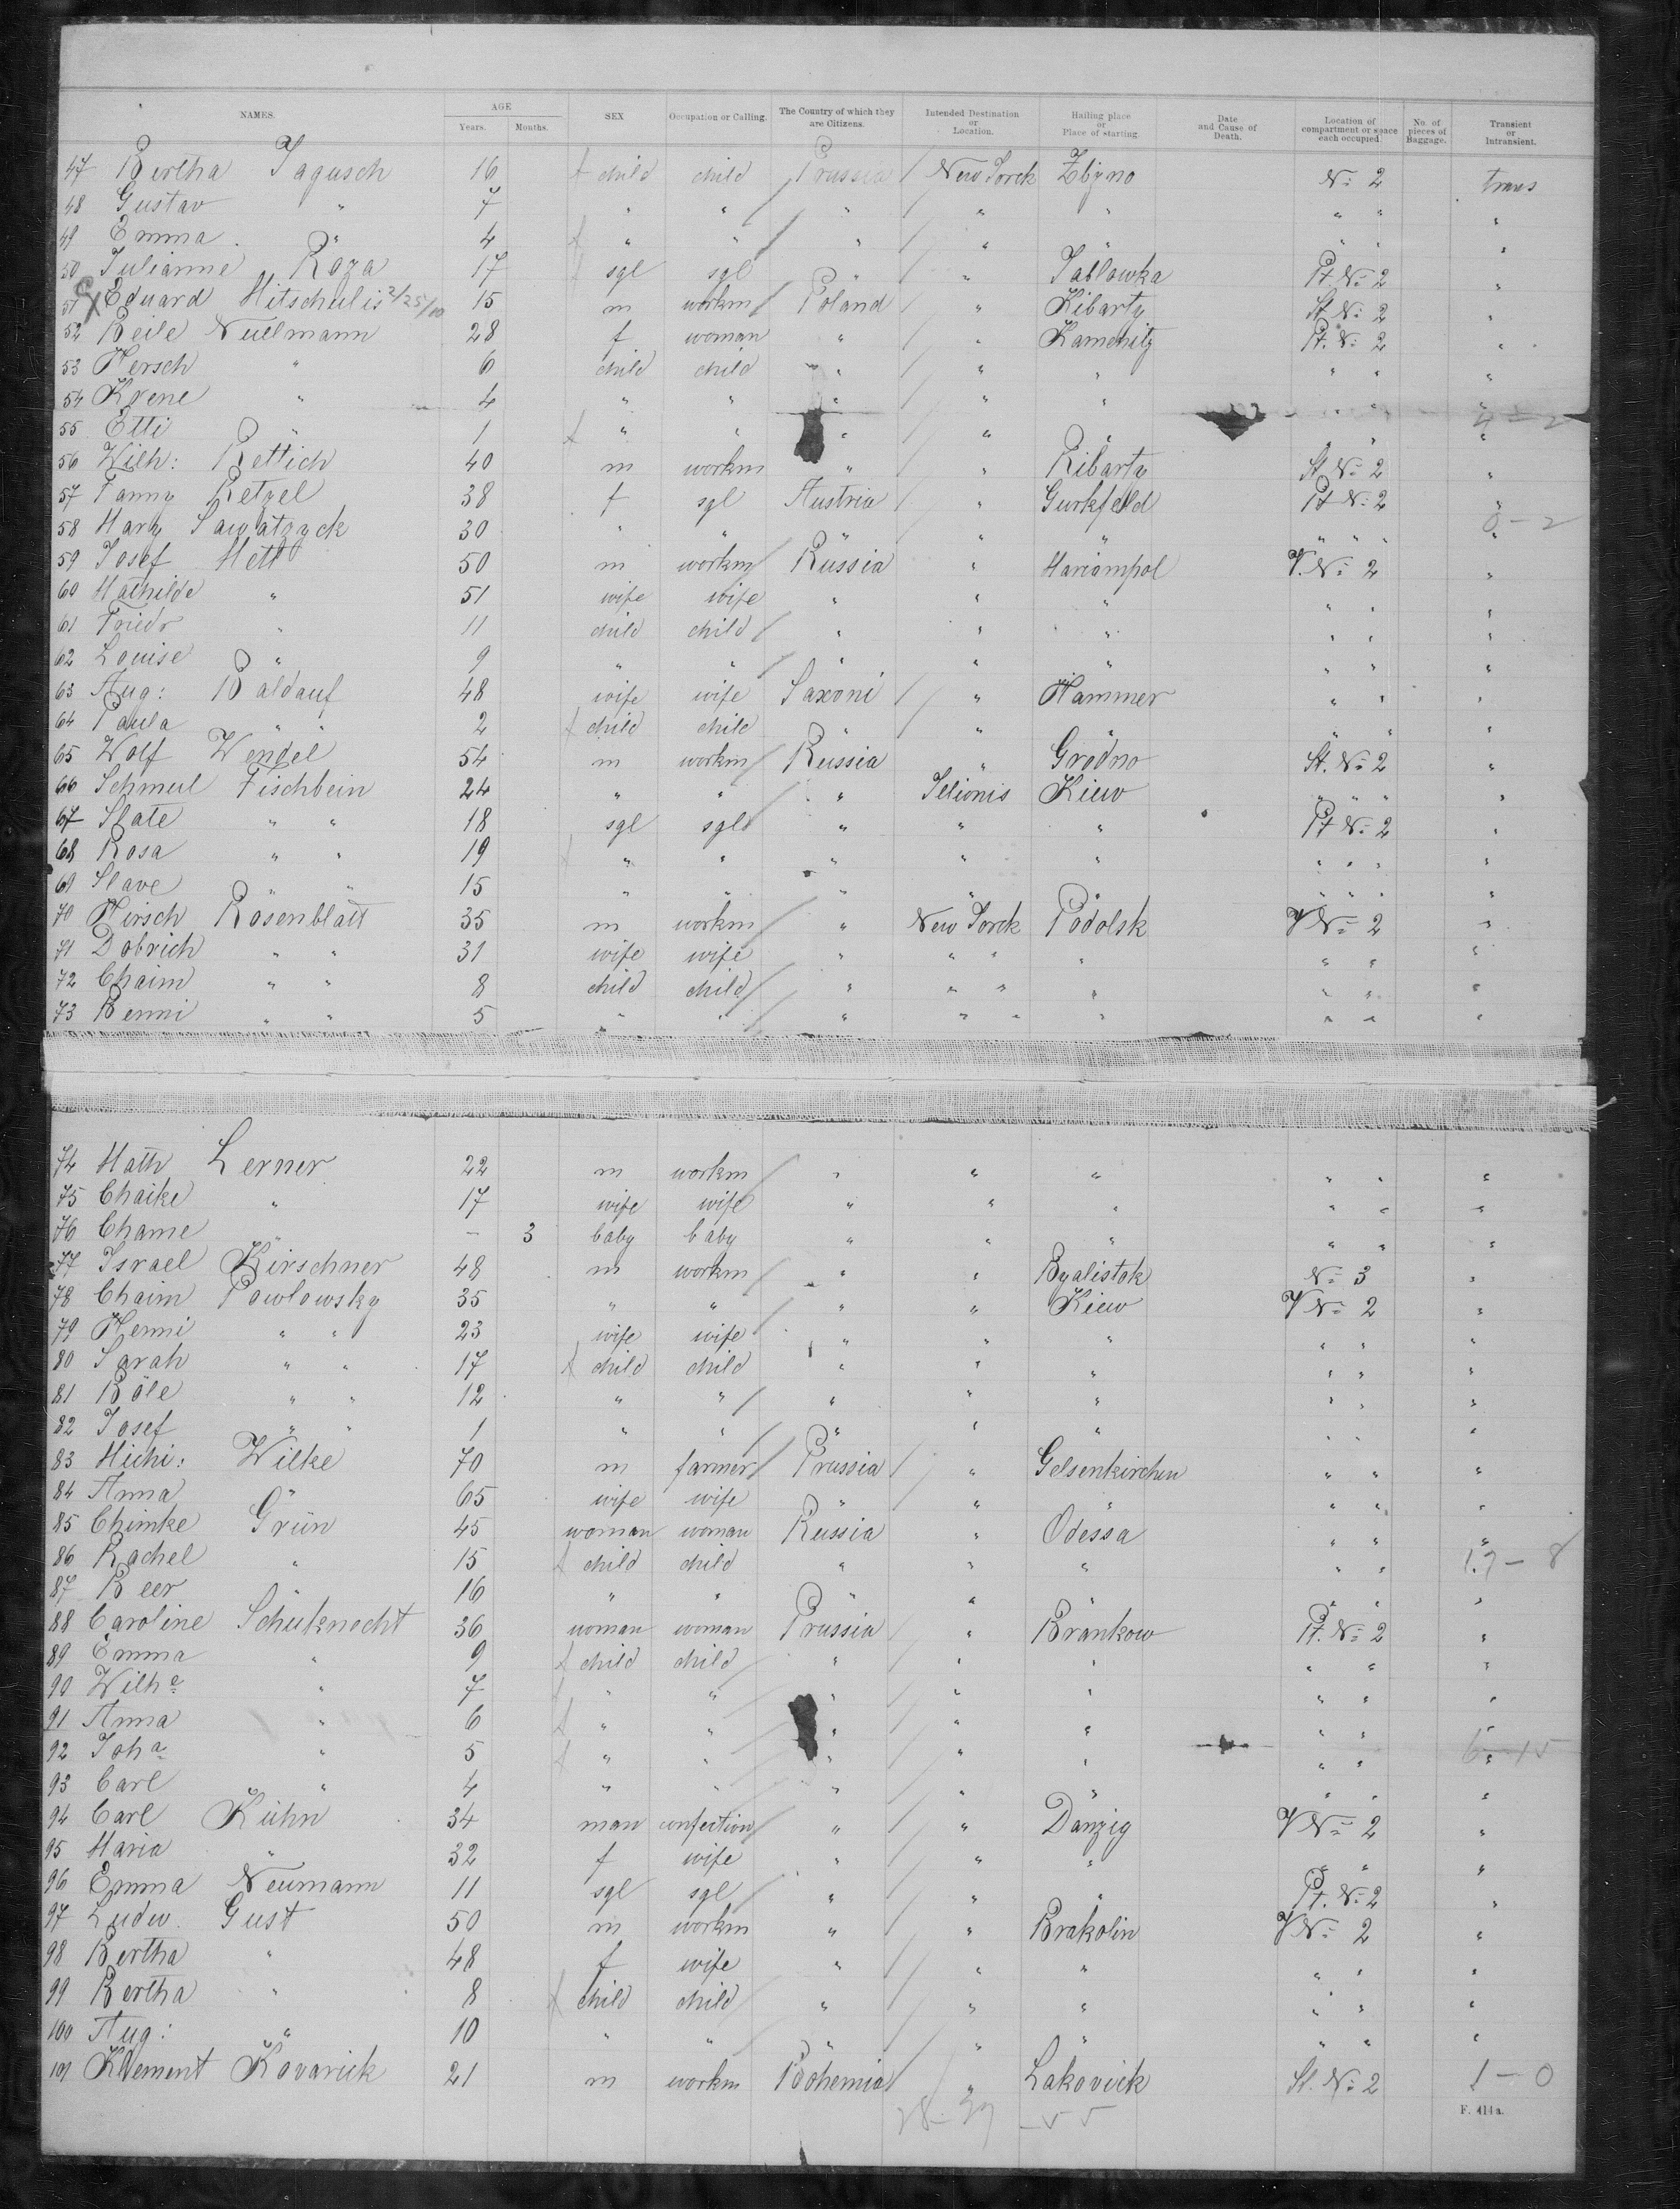 NAMES. AGE Years. Months. SEX Occupation or Calling. The Country of which they are Citizens. Intended Destination or Location. Hailing place or Place of starting. Date and Cause of Death. Location of compartment or space each occupied No. of pieces of Baggage. Transient or Intransient.
47 Bertha Jagusch 16 f child child Prussia New Yorck Zbyno No 2 trans
48 Gustav " 7 " " " " " " " "
49 Emma " 4 f " " " " " " " "
50 Julianne Roza 17 f sgl sgl " " Jablowka Pt No 2 "
51 Eduard Mitschulis 2/25/00 15 m workm Poland " Kibarty St. No 2 "
52 Beile Nullmann 28 f woman " " Kamenitz Pt. No 2 "
53 Hersch " 6 child child " " " " " "
54 Krene " 4 " " " " " " " "
55 Etti " 1 f " " " " " " " "
56 Wilh: Rettich 40 m workm " " Kibarty St No 2 "
57 Fanny Retzel 38 f sgl Austria " Gurkfeld Pt No 2 "
58 Mary Sawatzyck 30 " " " " " " " " "
59 Josef Mett 50 m workm Russia " Mariampol V. No 2 "
60 Mathilde " 51 wife wife " " " " " "
61 Friedr " 11 child child " " " " " "
62 Louise " 9 " " " " " " " "
63 Aug: Baldauf 48 wife wife Saxoni " Hammer " " "
64 Paula " " 2 f child child " " " " " "
65 Wolf Wendel 54 m workm Russia " Grodno St. No 2 "
66 Schmul Fischbein 24 " " " Kiew " " " "
67 Slate " " 18 sgl sgl " " " Pt No 2 "
68 Rosa " " 19 f " " " " " " " " "
69 Slave " " 15 " " " " " " " " "
70 Hirsch Rosenblatt 35 m workm " New Yorck Podolsk V No 2 "
71 Dobrich " " 31 wife wife " " " " " " "
72 Chaim " " 8 child child " " " " " " "
73 Benni " " 5 " " " " " " " " "
74 Math Lerner 22 m workm " " " " " "
75 Chaike " 17 wife wife " " " " " "
76 Chame " - 3 baby baby " " " " " "
77 Israel Kirschner 48 m workm " " Byalistok No 3 "
78 Chaim Pawlowsky 35 " " " " Kiew V No 2 "
79 Henni " " 23 wife wife " " " " " "
80 Sarah " " 17 f child child " " " " " "
81 Böle " " 12 " " " " " " " "
82 Josef " " 1 " " " " " " " "
83 Michi: Wilke 70 m farmer Prussia " Gelsenkirchen " " "
84 Anna " 65 wife wife " " " " " "
85 Chimke Grün 45 woman woman Russia " Odessa " " "
86 Rachel " 15 f child child " " " " " "
87 Beer 16 " " " " " " " "
88 Caroline Schuknecht 36 woman woman Prussia " Brankow Pt. No 2 "
89 Emma " 9 f child child " " " " " "
90 Wilhe " 7 f " " " " " " " "
91 Anna " 6 f " " " " " " " "
92 Joha " 5 f " " " " " " " "
93 Carl " 4 " " " " " " " "
94 Carl Kuhn 34 man confection " " Danzig V No 2 "
95 Maria " 32 f wife " " " " " "
96 Emma Neumann 11 sgl sgl " " " Pt. No 2 "
97 Ludw. Gust 50 m workm " " Brakolin V No 2 "
98 Bertha " 48 f wife " " " " " "
99 Bertha " 8 f child child " " " " " "
100 Aug: " 10 " " " " " " " "
101 Klement Kovarick 21 m workm Bohemia " Lakovick St. No 2 1 - 0
F. 414a.